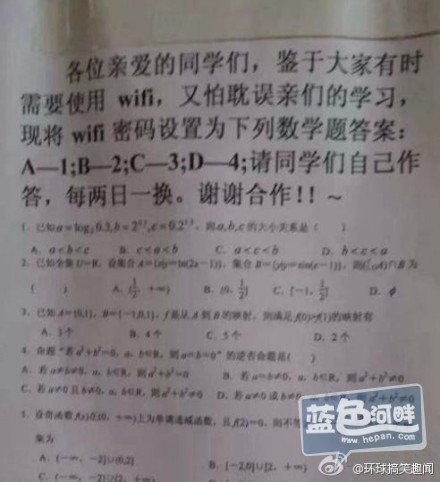 各位亲爱的同学们，鉴于大家有时
需要使用 wifi，又怕耽误亲们的学习，
现将 wifi 密码设置为下列数学题答案：
A—1;B—2;C—3;D—4;请同学们自己作
答，每两日一换。谢谢合作！！~
1. 已知a=log₂0.3, 则a,b,c的大小关系是（ ）
A. a<b<c B. c<a<b C. a<c<b D. b<c<a
2. 已知全集U=R, 设集合A={x|y=ln(2x-1)}, 集合B={y|y=sin(x-1)}, 则(∁ᵤA)∩B为
（ ） A. (1/2, +∞) B. (0, 1/2] C. [-1, 1/2] D. φ
3. 已知A={0,1}, B={-1,0,1}, f是从A到B的映射, 则满足f(0)>f(1)的映射有
A. 3个 B. 4个 C. 5个 D. 2个
4. 命题“若a²+b²=0, a, b∈R, 则a=b=0”的逆否命题是( )
A. 若a≠b≠0, a, b∈R, 则a²+b²=0 B. 若a=b≠0, a, b∈R, 则a²+b²≠0
C. 若a≠0且b≠0, a, b∈R, 则a²+b²≠0 D. 若a≠0或b≠0
5. 设奇函数f(x)在(0, +∞)上为单调递减函数, 且f(2)=0, 则不等
集为
A. (-∞, -2]∪(0,2] B. [-2,0]∪[2, +∞)
C. (-∞, -2]∪[2, +∞)
蓝色河畔
www.hepan.com
@环球搞笑趣闻